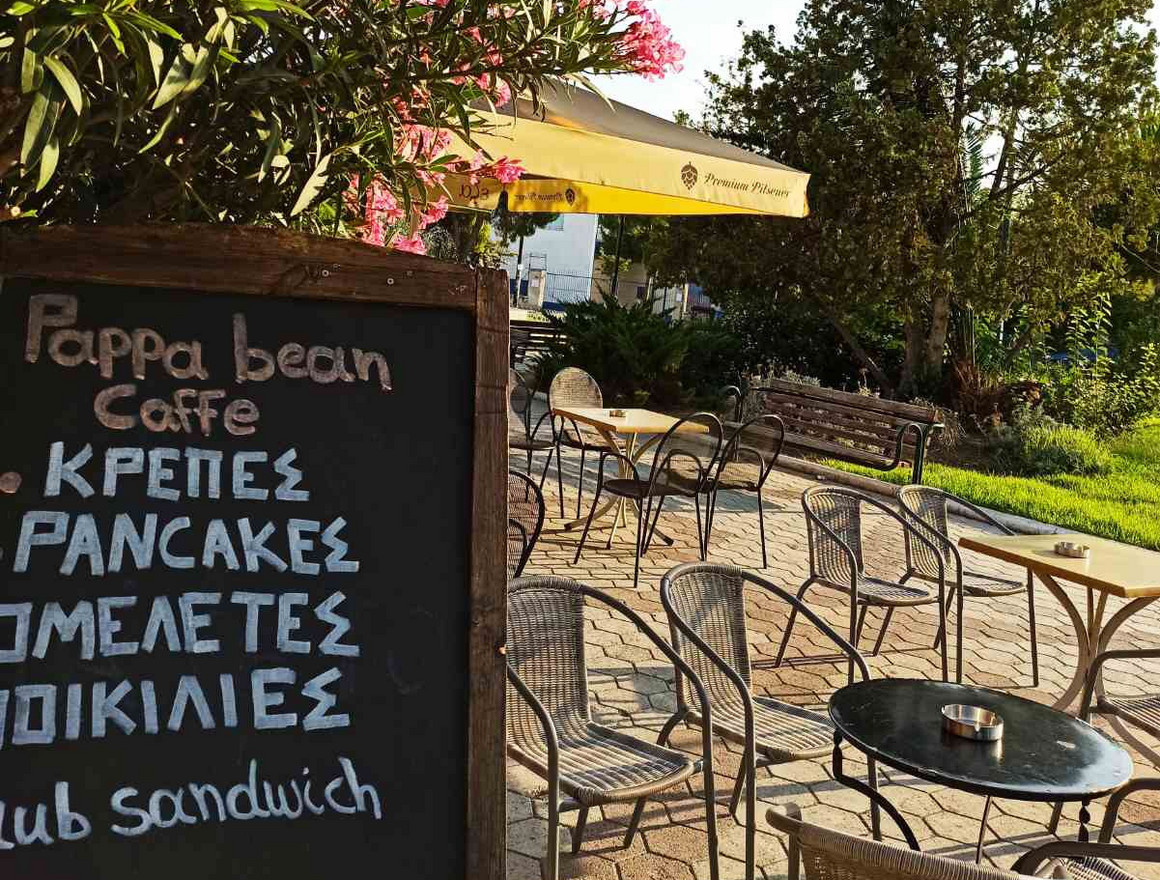 Pappa bean
Caffe
• ΚΡΕΠΕΣ
PANCAKEΣ
ΟΜΕΛΕΤΕΣ
ΠΟΙΚΙΛΙΕΣ
lub sandwich
Premium Pilsener
Premium Pilsener